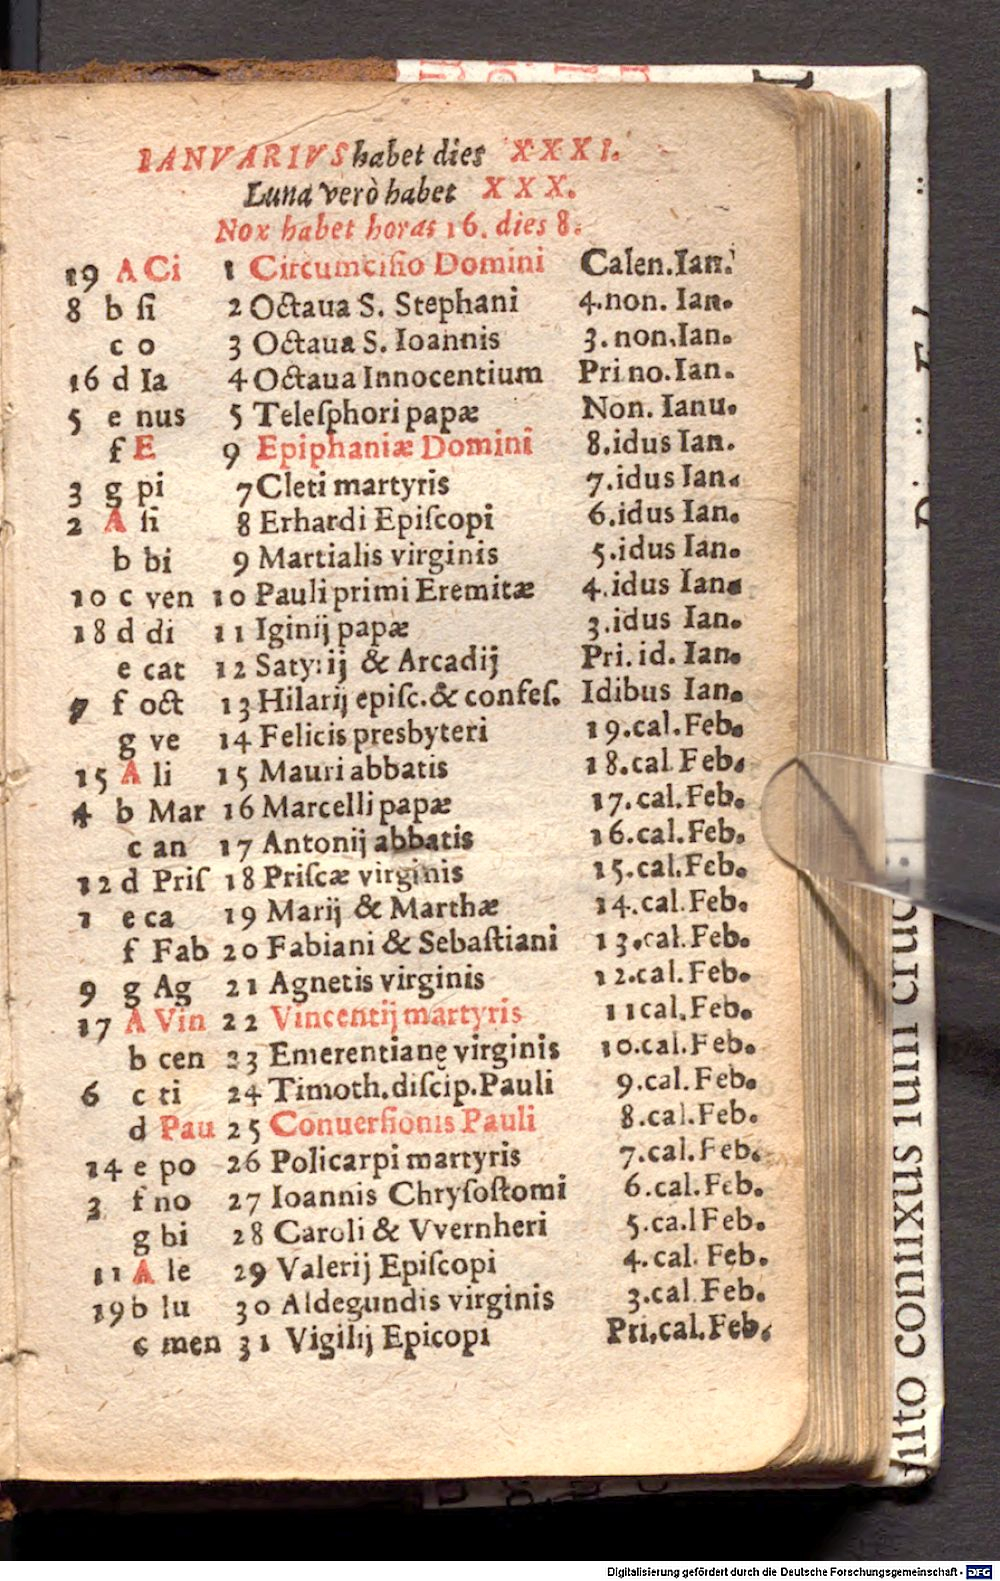 IANVARIVS habet dies XXXI.
Luna verò habet XXX.
Nox habet horas 16. dies 8.
19 A Ci 1 Circumcisio Domini Calen.Ian.
8 b ſi 2 Octaua S. Stephani 4.non. Ian.
c o 3 Octaua S. Ioannis 3. non.Ian.
16 d Ia 4 Octaua Innocentium Pri no.Ian.
5 e nus 5 Teleſphori papæ Non. Ianu.
f E 9 Epiphaniæ Domini 8.idus Ian.
3 g pi 7 Cleti martyris 7.idus Ian.
2 A ſi 8 Erhardi Epiſcopi 6.idus Ian.
b bi 9 Martialis virginis 5.idus Ian.
10 c ven 10 Pauli primi Eremitæ 4.idus Ian.
18 d di 11 Iginij papæ 3.idus Ian.
e cat 12 Satyrij & Arcadij Pri. id. Ian.
7 f oct 13 Hilarij epiſc.& confeſ. Idibus Ian.
g ve 14 Felicis presbyteri 19.cal.Feb.
15 A li 15 Mauri abbatis 18.cal Feb.
4 b Mar 16 Marcelli papæ 17.cal.Feb.
c an 17 Antonij abbatis 16.cal.Feb.
12 d Priſ 18 Priſcæ virginis 15.cal.Feb.
1 e ca 19 Marij & Marthæ 14.cal.Feb.
f Fab 20 Fabiani & Sebaſtiani 13.cal.Feb.
9 g Ag 21 Agnetis virginis 12.cal.Feb.
17 A Vin 22 Vincentij martyris 11cal.Feb.
b cen 23 Emerentianę virginis 10.cal.Feb.
6 c ti 24 Timoth.diſcip.Pauli 9.cal.Feb.
d Pau 25 Conuerſionis Pauli 8.cal.Feb.
14 e po 26 Policarpi martyris 7.cal.Feb.
3 f no 27 Ioannis Chryſoſtomi 6.cal.Feb.
g bi 28 Caroli & Vvernheri 5.ca.lFeb.
11 A le 29 Valerij Epiſcopi 4. cal. Feb.
19 b lu 30 Aldegundis virginis 3.cal.Feb.
c men 31 Vigilij Epicopi Pri.cal.Feb.
Digitalisierung gefördert durch die Deutsche Forschungsgemeinschaft - DFG